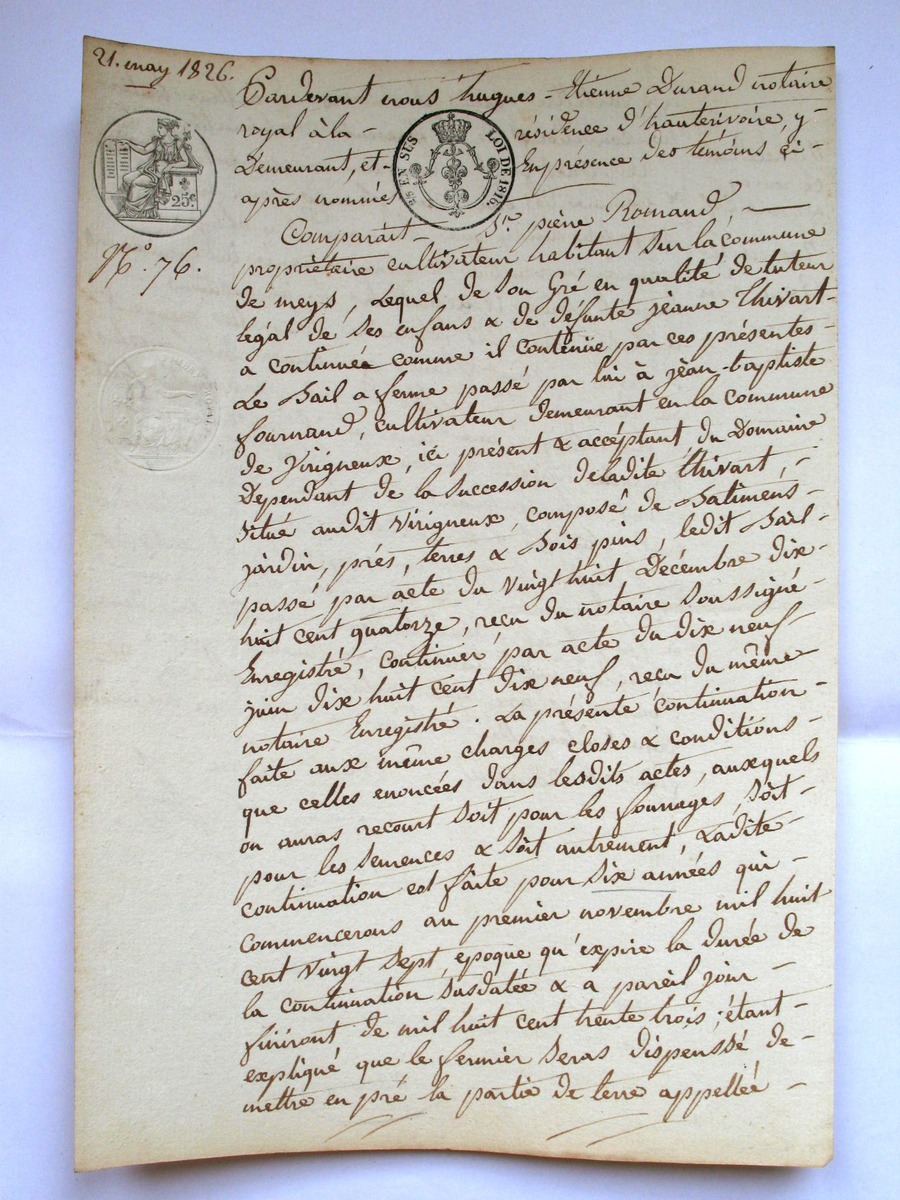 21. may 1826.
Pardevant nous hugues-Etienne Durand notaire
royal à la - résidence d'hauterivoire, y-
Demeurant, et En présence des témoins ci-
après nommés
25 EN SUS LOI DE 1816.
25c
Nº. 76.
Comparait Sr. pierre Romand, —
propriétaire cultivateur habitant sur la commune
de meys, Lequel de son Gré en qualité de tuteur
légal de ses enfans & de défunte jeanne thivart-
a continuée comme il continue par ces présentes-
Le Bail a ferme passé par lui à jean-baptiste
fournand, cultivateur demeurant en la commune
de Virigneux, ici présent & accéptant du Domaine
Dependant de la succession deladite thivart, -
situé audit Virigneux, composé de Batimens-
jardin, prés, terres & Bois pins, ledit Bail-
passé par acte du vingt huit Décembre dix-
huit cent quatorze, recu du notaire soussigné-
Enregistré, continuer par acte du dix neuf-
juin dix huit cent dix neuf, recu du même-
notaire Enregistré. La présente continuation-
faite aux même charges closes & conditions-
que celles enoncées dans lesdits actes, auxquels
on auras recourt soit pour les fourrages, soit-
pour les semences & soit autrement, Ladite-
continuation est faite pour six années qui-
commencerons au premier novembre mil huit
cent vingt sept, epoque qu'expire la durée de
la continuation susdatée & a pareil jour-
finiront de mil huit cent trente trois; étant-
expliqué que le fermier seras dispenssé de-
mettre en pré la partie de terre appellée-